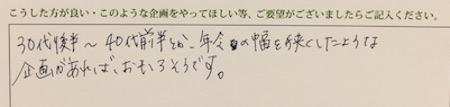 こうした方が良い・このような企画をやってほしい等、ご要望がございましたらご記入ください。
30代後半〜40代前半とか、年令の幅を狭くしたような
企画があれば、おもしろそうです。